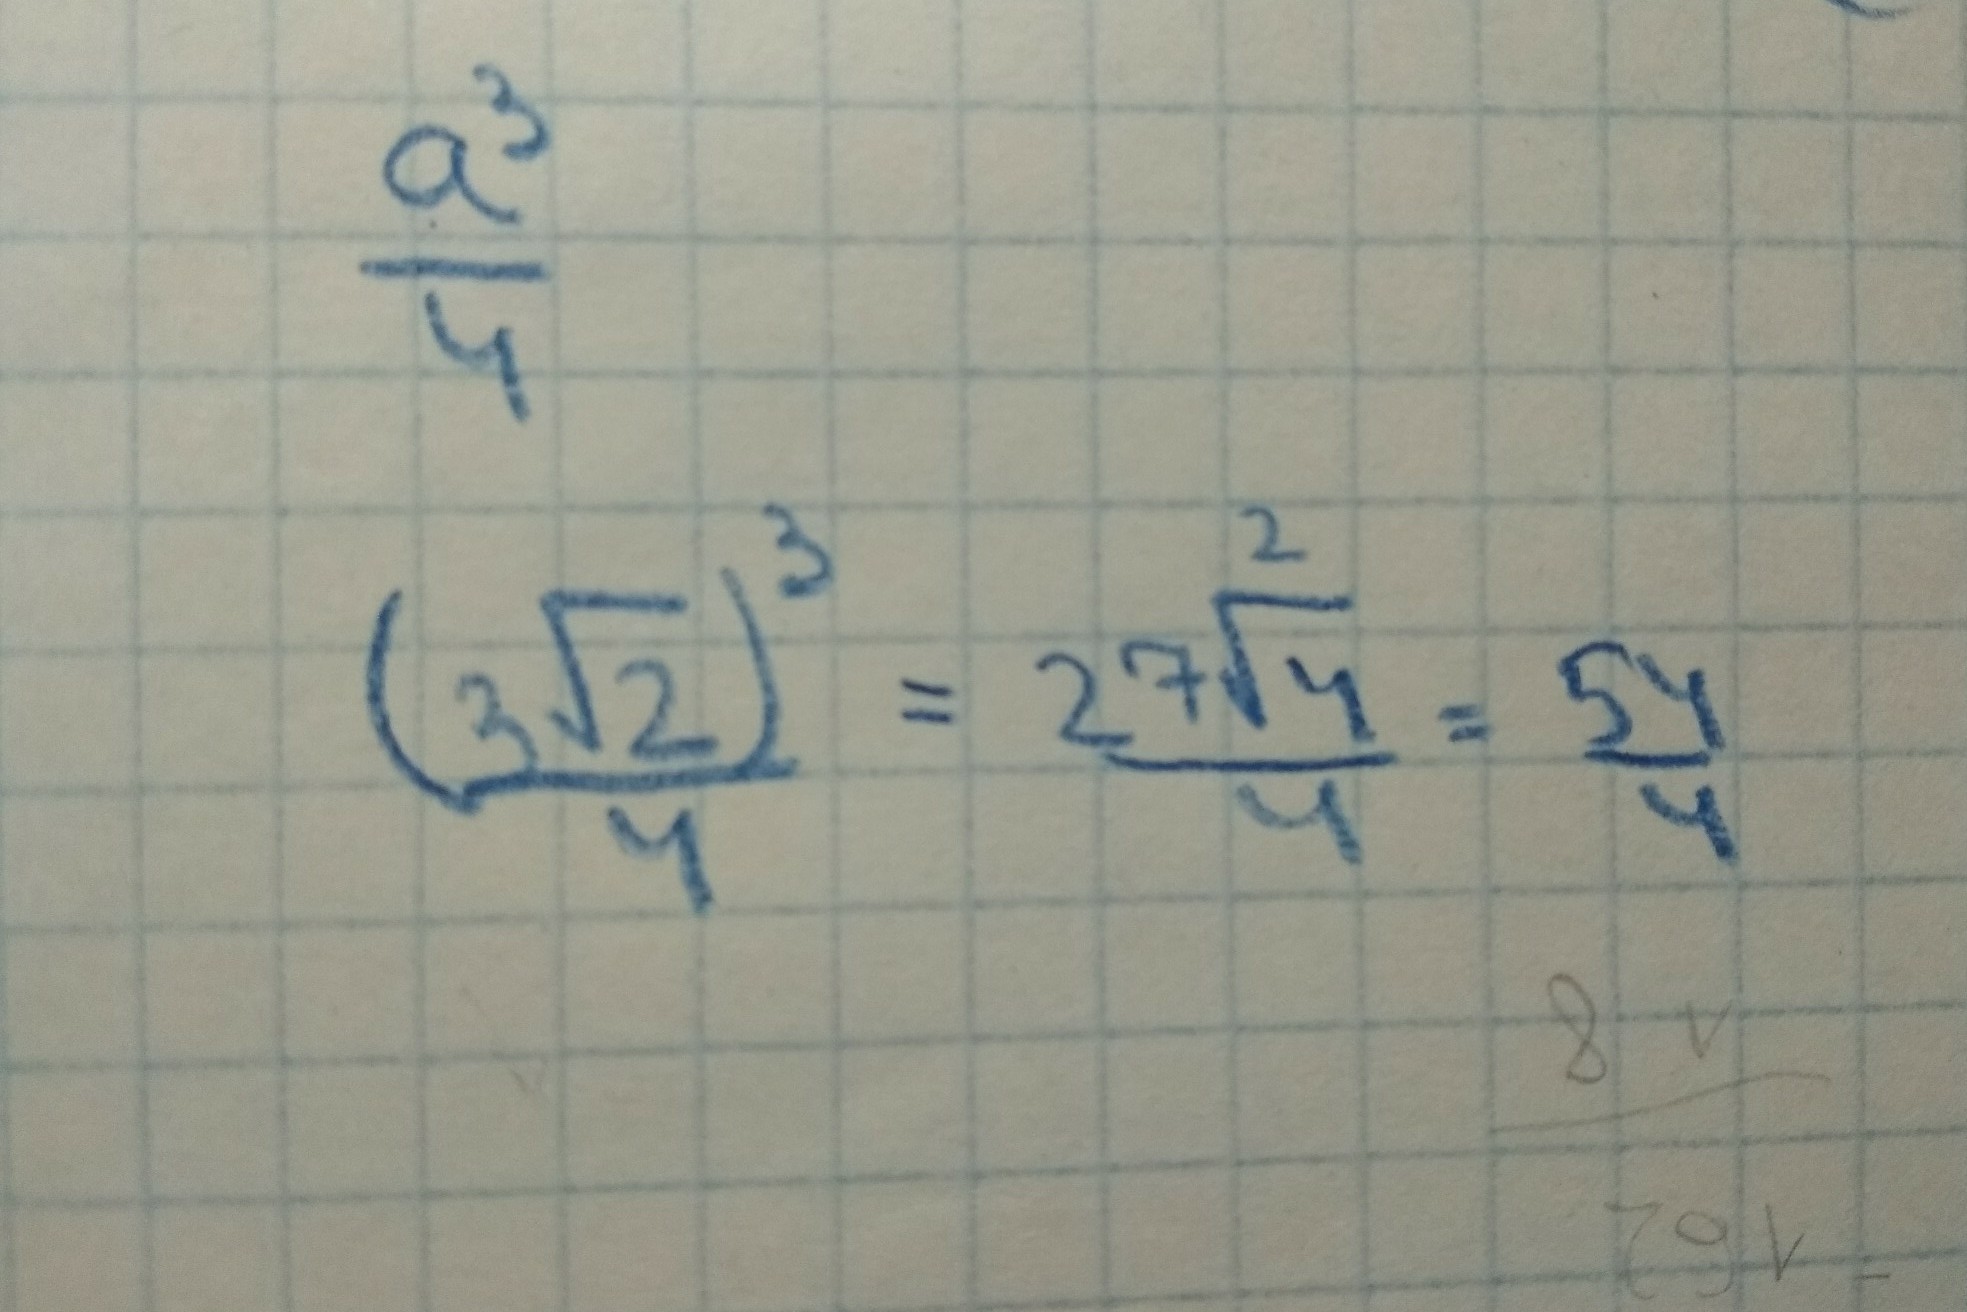 a³/4
(3√2)³/4 = 27√4²/4 = 54/4